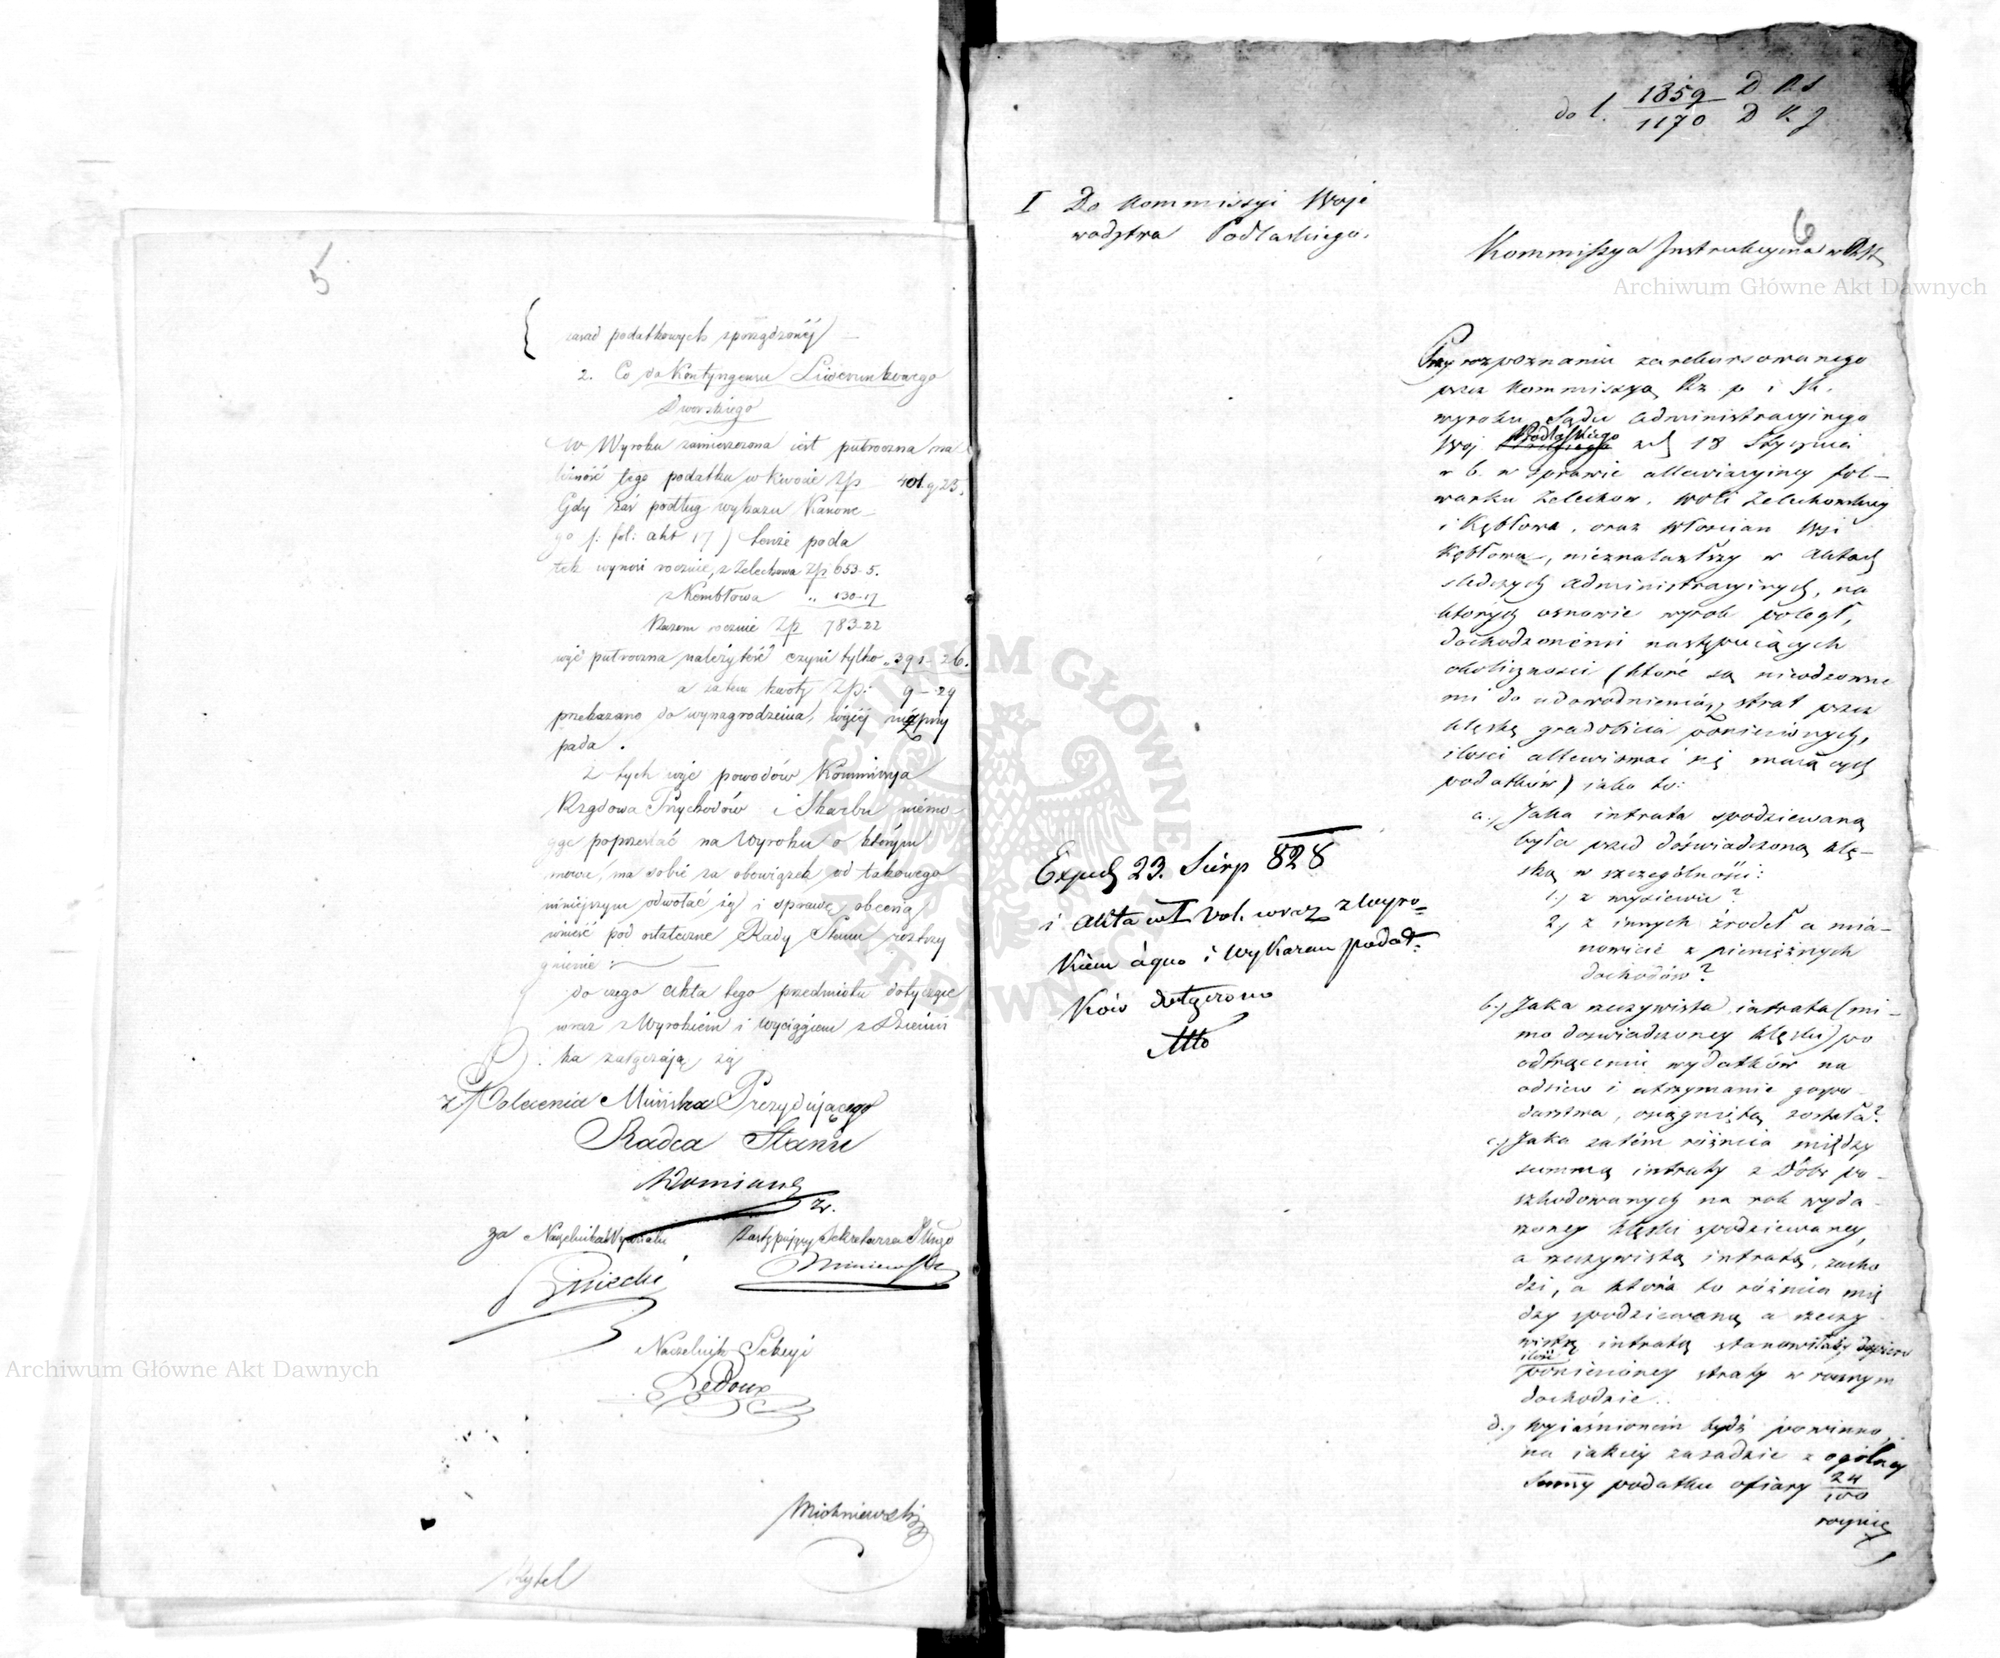 5
zasad podatkowych sporządzonéj) —
2. Co do Kontyngensu Liwerunkowego
Dworskiego
W Wyroku zamieszczona iest putroczna na
leżność tego podatku w kwocie Zp 401 g 25.
Gdy zaś podług wykazu Kasowe-
go /: fol: akt 17) tenże poda
tek wynosi rocznie, z Zelechowa Zp 653-5.
z Kembłowa „ 130-17
Razem rocznie Zp 783-22
więc putroczna należytość czyni tylko „ 391-26.
a zatem kwoty Zp: 9-29
przekazano do wynagrodzenia, więcéj niż przy
pada.
Z tych więc powodów Kommissya
Rządowa Przychodów i Skarbu niemo-
gąc poprzestać na Wyroku o którym
mowa, ma sobie za obowiązek od takowego
niniejszym odwołać się i sprawę obecną
wnieść pod ostateczne Rady Stanu roztrzy
gnienie:
do czego akta tego przedmiotu dotyczące
wraz z Wyrokiem i wyciągiem z Dzienni
ka załączają się
z Polecenia Ministra Prezydującego
Radca Stanu
za Naczelnika Wydziału Zastępujący Sekretarza Jlnego
Naczelnik Sekcyi
Ledoux
do l. 1359 D
1170 D
I Do Kommissyi Woje
wodztwa Podlaskiego.
6
Kommissya Instrukcyina w RSt
Archiwum Główne Akt Dawnych
Przy rozpoznaniu zarekursowanego
przez Kommissyą Rz. p i Sk.
wyroku Sądu Administracyinego
Woj Podlaskiego z d 18 Stycznia
r b. w sprawie allewiacyiney fol-
warku Zelechow, Woli Zelechowskiey
i Kębłowa, oraz Włościan Wsi
Kębłowa, nieznalazłszy w Aktach
śledczych administracyinych, na
których osnowie wyrok poległ,
dochodzeniémi następuiących
okoliczności (które są nieodzowne
mi do udowodnienia strat przez
klęskę gradobicia poniesionych,
ilości allewiować się maiących
podatków) iako to:
a.) Jaka intrata spodziewaną
była przed doświadczoną klę-
ską w szczególności:
1.) z wysiewu?
2.) z innych źrodeł a mia-
nowicie z pieniężnych
dochodów?
b.) Jaka rzeczywista intrata (mi-
mo doświadczoney klęski) po
odtrąceniu wydatków na
odsiew i utrzymanie gospo-
darstwa, osiągniętą została?
c.) Jaka zatém różnica między
summą intraty z Dóbr po-
szkodowanych na rok wyda-
rzoney klęski spodziewaney,
a rzeczywistą intratą, zacho
dzi, a która to różnica mię
dzy spodziewaną a rzeczy
wistą intratą stanowiłaby dopiero
ilość
poniesioney straty w rocznym
dochodzie..
d.) Wyiaśnioném bydź powinno,
na iakiéy zasadzie z ogólney
Summy podatku ofiary 24
100
rocznie
Exped 23. Sierp 828
i Akta w I Vol. wraz z Wyro=
kiem a quo i Wykazem podat=
ków dołączono
Archiwum Główne Akt Dawnych
ARCHIWUM GŁÓWNE AKT DAWNYCH